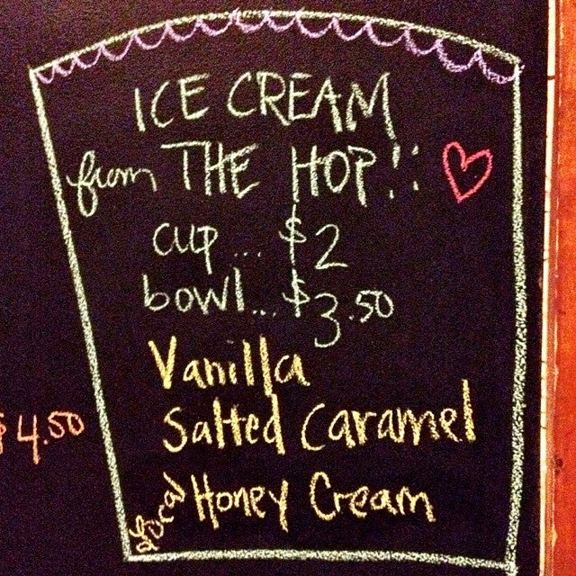 ICE CREAM
from THE HOP!!
cup ... $2
bowl... $3.50
Vanilla
$4.50
Salted Caramel
Local Honey Cream